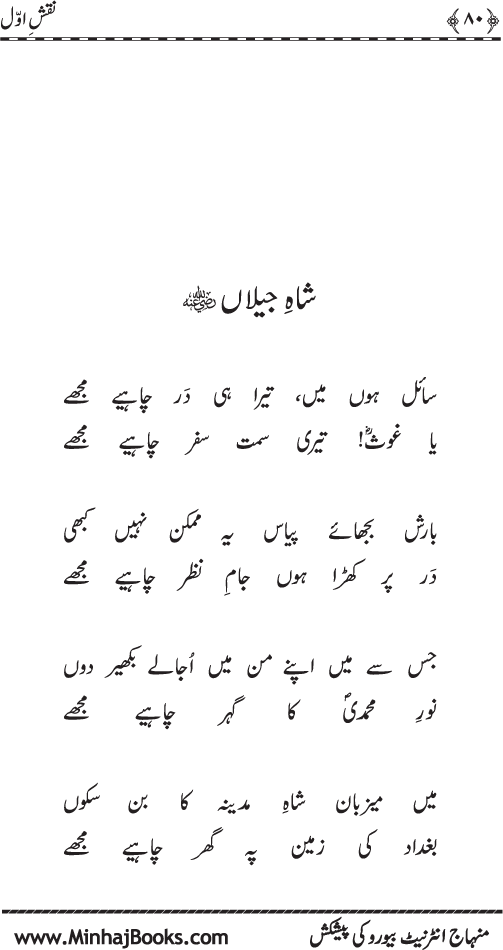 ﴿۸۰﴾ نقشِ اوّل
شاہِ جیلاں رضی اللہ عنہ
سائل ہوں میں، تیرا ہی دَر چاہیے مجھے
یا غوثؓ! تیری سمت سفر چاہیے مجھے
بارش بجھائے پیاس یہ ممکن نہیں کبھی
دَر پر کھڑا ہوں جامِ نظر چاہیے مجھے
جس سے میں اپنے من میں اُجالے بکھیر دوں
نورِ محمدیؐ کا گہر چاہیے مجھے
میں میزبان شاہِ مدینہ کا بن سکوں
بغداد کی زمین پہ گھر چاہیے مجھے
منہاج انٹرنیٹ بیورو کی پیشکش www.MinhajBooks.com